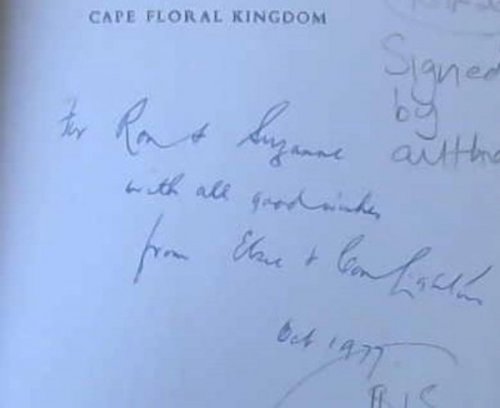 CAPE FLORAL KINGDOM
Signed
by
for Ron & Suzanne
with all good wishes
from Elsie & Con Lighton
Oct 1977